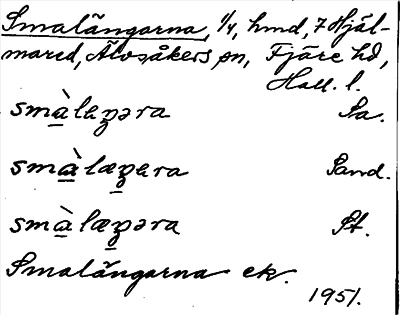 Smalängarna, 1/4, hmd, 7 Hjäl-
mared, Älvsåkers sn, Fjäre hd,
Hall. l.
smàleŋəra Sa.
smàlæŋera Sand.
smàlæŋəra St.
Smalängarna ek.
1951.